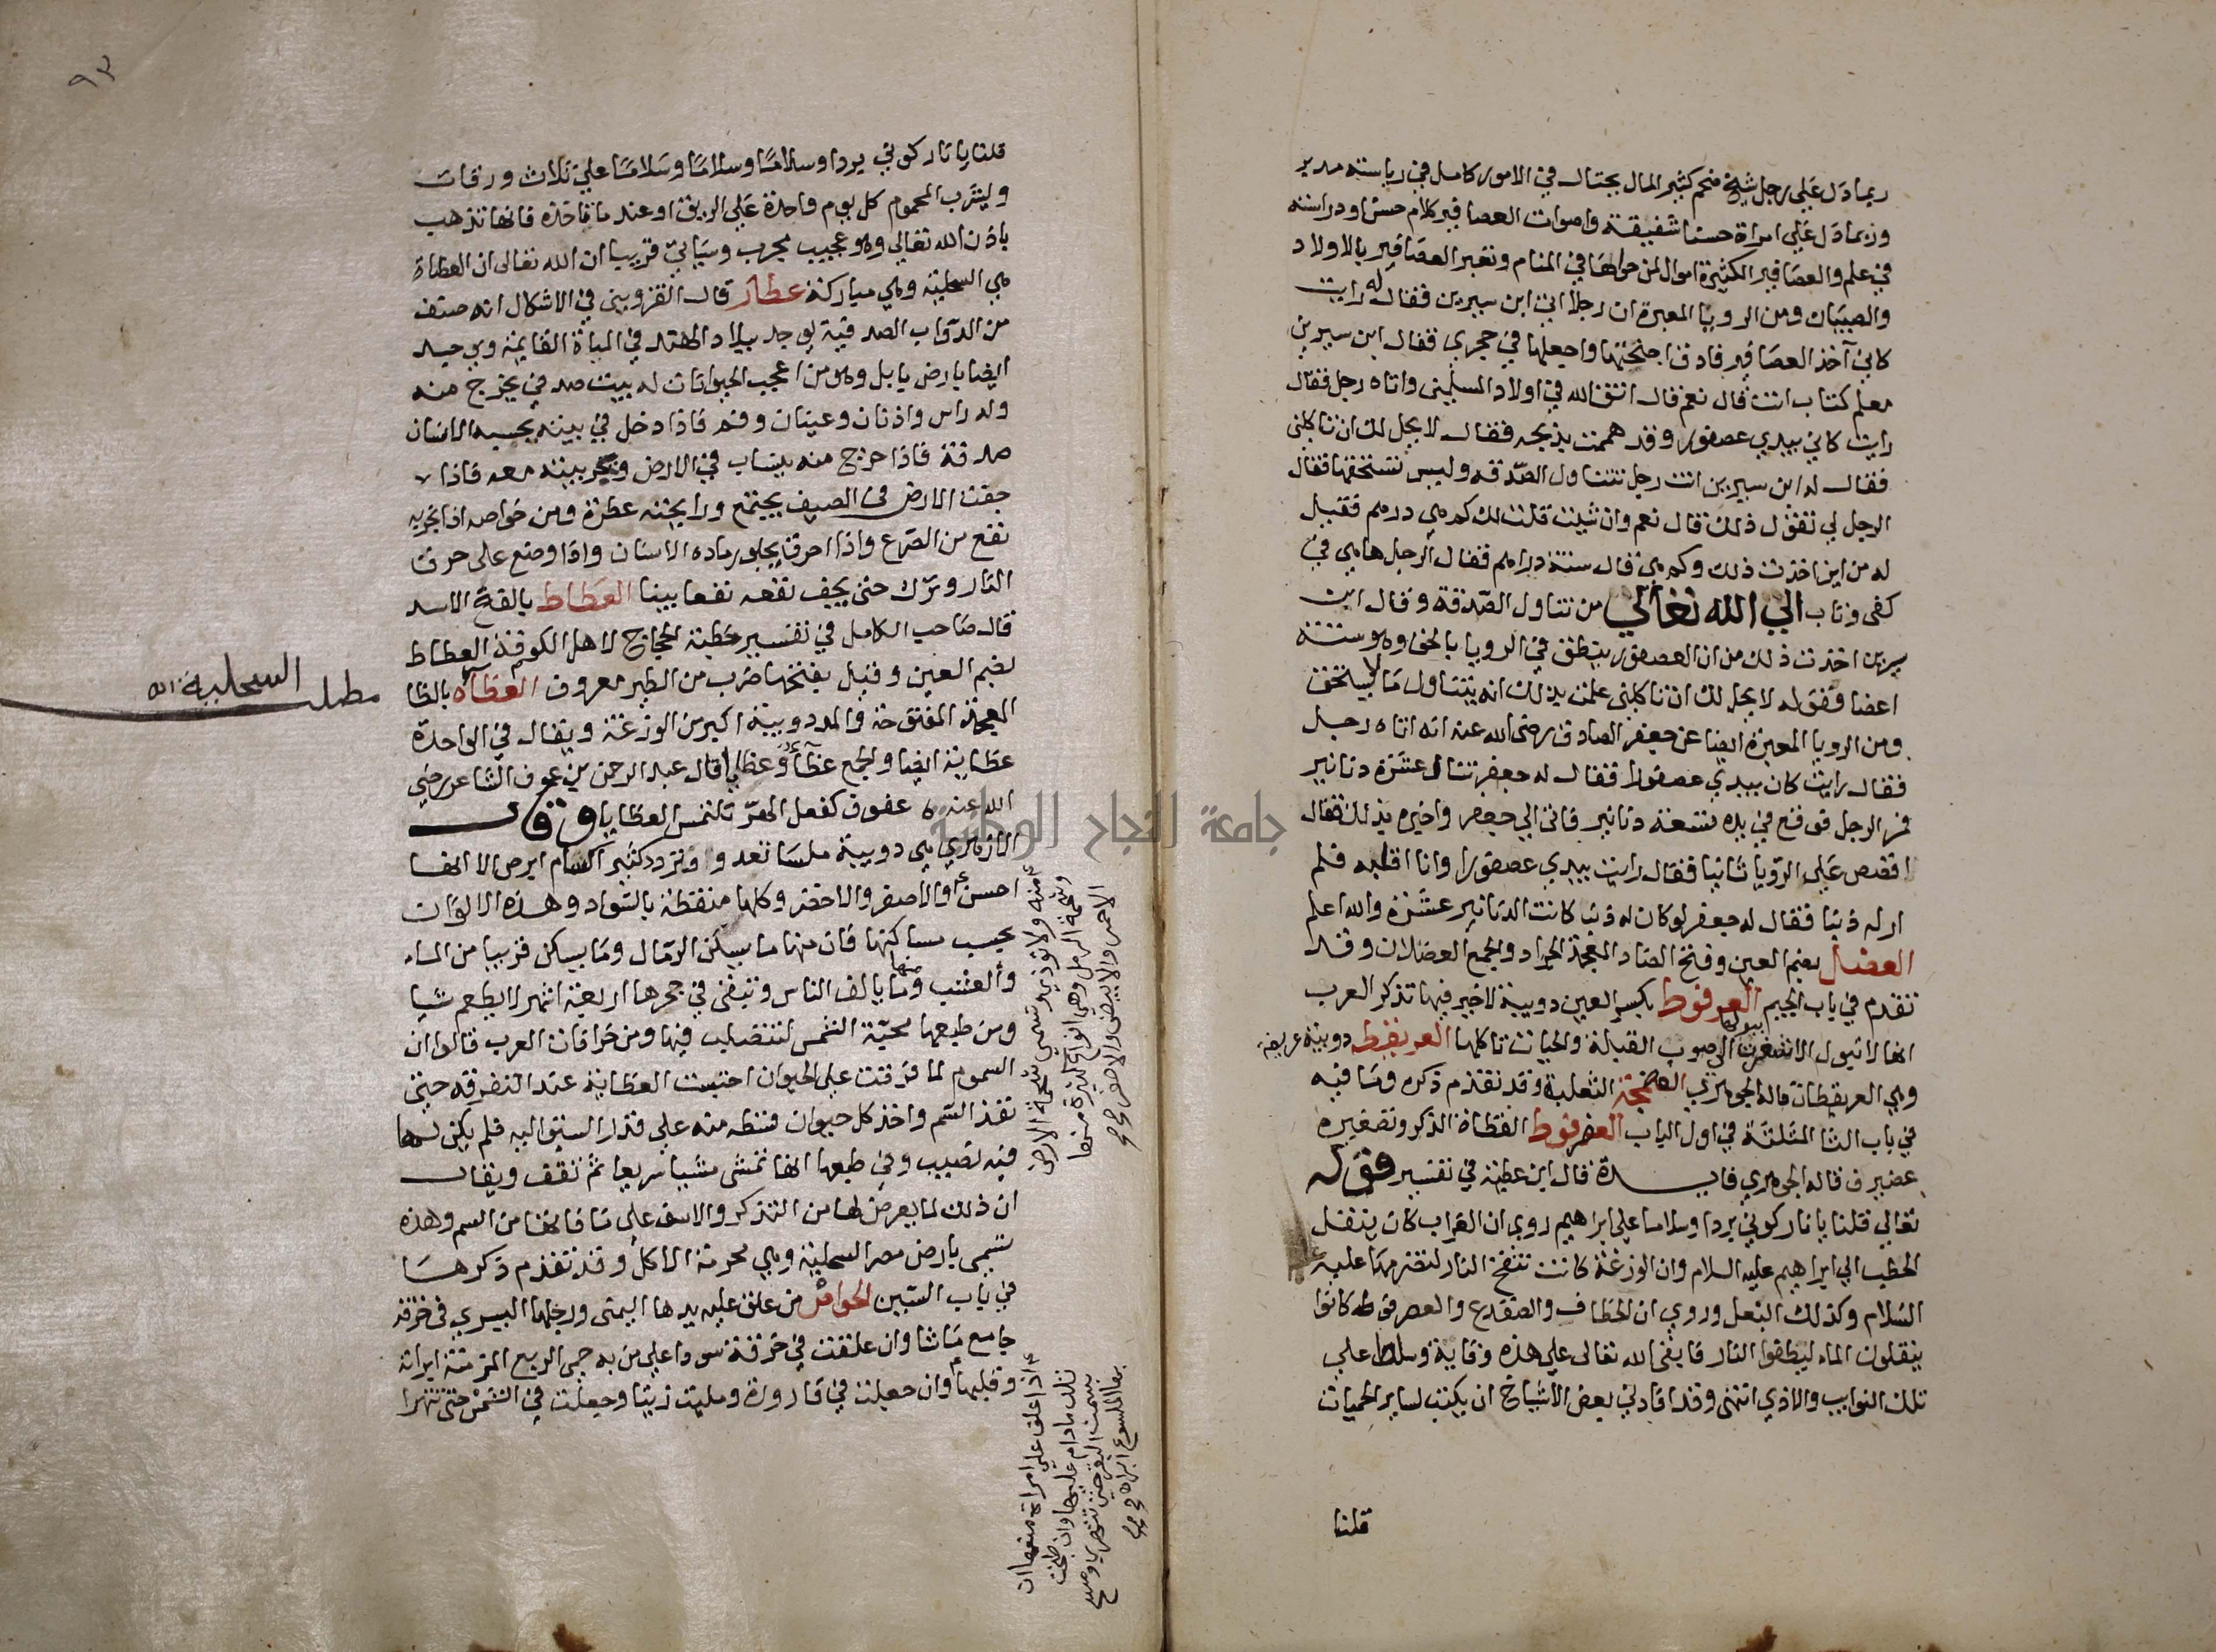 ربما دل على رجل شيخ ضخم كثير المال يحتال في الامور كامل في رياسته مدبر
وربما دل على امراة حسنا شفيقة واصوات العصافير كلام حسن او دراسة
في علم والعصافير الكثيرة اموال لمن حواها في المنام وتعبر العصافير بالاولاد
والصبيان ومن الرويا المعبرة ان رجلا اتى ابن سيرين فقال له رايت
كاني آخذ العصافير فادق اجنحتها واجعلها في حجري فقال ابن سيرين
معلم كتاب انت قال نعم قال اتق الله في اولاد المسلمين واتاه رجل فقال
رايت كاني بيدي عصفور وقد هممت بذبحه فقال لا يحل لك ان تاكلني
فقال له ابن سيرين انت رجل تتناول الصدقة وليس تستحقها فقال
الرجل لي تقول ذلك قال نعم وان شيت قلت لك كم هي درهم فقيل
له من اين اخذت ذلك وكم هي قال ستة دراهم فقال الرجل ها هي في
كفي وتاب الي الله تعالي من تناول الصدقة وقال ابن
سيرين اخذت ذلك من ان العصفور ينطق في الرويا بالحق وهو ستة
اعضا وقوله لا يحل لك ان تاكلني علمت بذلك انه يتناول ما لا يستحق
ومن الرويا المعبرة ايضا عن جعفر الصادق رضي الله عنه انه اتاه رجل
فقال رايت كان بيدي عصفورا فقال له جعفر تنال عشرة دنانير
فمر الرجل فوقع في يده تسعة دنانير فاتى الي جعفر واخبره بذلك فقال
اقصص علي الرويا ثانيا فقال رايت بيدي عصفورا وانا اقلبه فلم
ار له ذنبا فقال له جعفر لو كان له ذنبا كانت الدنانير عشرة والله اعلم
العضل بضم العين وفتح الضاد المعجمة الجراد والجمع العضلان وقد
تقدم في باب الجيم العرفوط بكسر العين دويبة لا خير فيها تذكر العرب
انها لا تبول الا شغرت ببولها الى صوب القبلة والحيات تاكلها العريقطه دويبة عريضة
وهي العريقطان قاله الجوهري الثعلبة وقد تقدم ذكره وما فيه
في باب الثا المثلثة في اول الباب العضرفوط العظاة الذكر وتصغيره
عضيرف قاله الجوهري فايدة قال ابن عطية في تفسير قوله
تعالي قلنا يا نار كوني بردا وسلاما على ابراهيم روي ان الغراب كان ينقل
الحطب الى ابراهيم عليه السلام وان الوزغة كانت تنفخ النار لتضرمها عليه
السلام وكذلك البغل وروي ان الخطاف والضفدع والعضرفوطه كانوا
ينقلون الماء ليطفوا النار فابقى الله تعالى على هذه وقاية وسلط على
تلك النوايب والاذي انتهى وقد افادني بعض الاشياخ ان يكتب لساير الحميات
قلنا
٩٣
قلنا يا نار كوني بردا وسلامًا وسلامًا وسلامًا علي ثلاث ورقات
ويشرب المحموم كل يوم واحدة علي الريق او عند ما تاخذه فانها تذهب
باذن الله تعالى وهو عجيب مجرب وسياتي قريبا ان الله تعالى ان العظاة
هي السحلية وهي مباركة عطار قال القزويني في الاشكال انه صنف
من الدواب الصدفية يوجد ببلاد الهند في المياة القايمة ويوجد
ايضا بارض بابل وهو من اعجب الحيوانات له بيت صدفي يخرج منه
وله راس واذنان وعينان وفم فاذا دخل في بيته يحسبه الانسان
صدفة فاذا خرج منه ينساب في الارض ويجر بيته معه فاذا
جفت الارض في الصيف يجتمع ورايحته عطرة ومن خواصه اذا بخر به
نفع من الصرع واذا احرق يجلو رماده الاسنان واذا وضع على حرق
النار وترك حتى يجف نفعه نفعا بينا العطاط بالفتح الاسد
قال صاحب الكامل في تفسير خطبة الحجاج لاهل الكوفة العطاط
بضم العين وقيل بفتحها ضرب من الطير معروف العظاه بالظا
المعجمة المفتوحة والمد دويبة اكبر من الوزغة ويقال في الواحدة
عظاية ايضا والجمع عظاء وعظايا قال عبد الرحمن بن عوف الشاعر رضي
الله عنه كفعل الهر تلتمس العظايا وقال
الازهري هي دويبة ملسا تعدو وتتردد كثيرا كسام ابرص الا انها
احسن منه ولا توذي وتسمي شحمة الارض
وشحمة الرمل وهي انواع كثيرة منها
الاحمر والابيض والاصفر
والاصفر والاخضر وكلها منقطة بالسواد وهذه الالوان
بحسب مساكنها فان منها ما يسكن الرمال وما يسكن قريبا من الماء
والعشب ومنها ما يالف الناس وتبقى في جحرها اربعة اشهر لا تطعم شيا
ومن طبعها محبة الشمس لتتصلب فيها ومن خرافات العرب قالوا ان
السموم لما فرقت علي الحيوان احتبست العظاية عند التفرقه حتى
نفذ السم واخذ كل حيوان قسطه منه علي قدر السبق اليه فلم يكن لها
فيه نصيب وفي طبعها انها تمشى مشيا سريعا ثم تقف ويقال
ان ذلك لما يعرض لها من التذكر والاسف على ما فاتها من السم وهذه
تسمى بارض مصر السحلية وهي محرمة الاكل وقد تقدم ذكرها
في باب السين الخواص من علق عليه يدها اليمنى ورجلها اليسري في خرقة
جامع ما شا وان علقت في خرقة سودا علي من به حمى الربع المزمنة ابراته
وقلبها اذا علق علي امراة منعها ان
تلد ما دام عليها وان طبخت
بسمن البقر حتي تتهري ومسح
بها الملسوع ابراه
وان جعلت في قارورة ومليت زيتا وجعلت في الشمس حتى تتهرا
مطلب السحلية
جامعة النجاح الوطنية